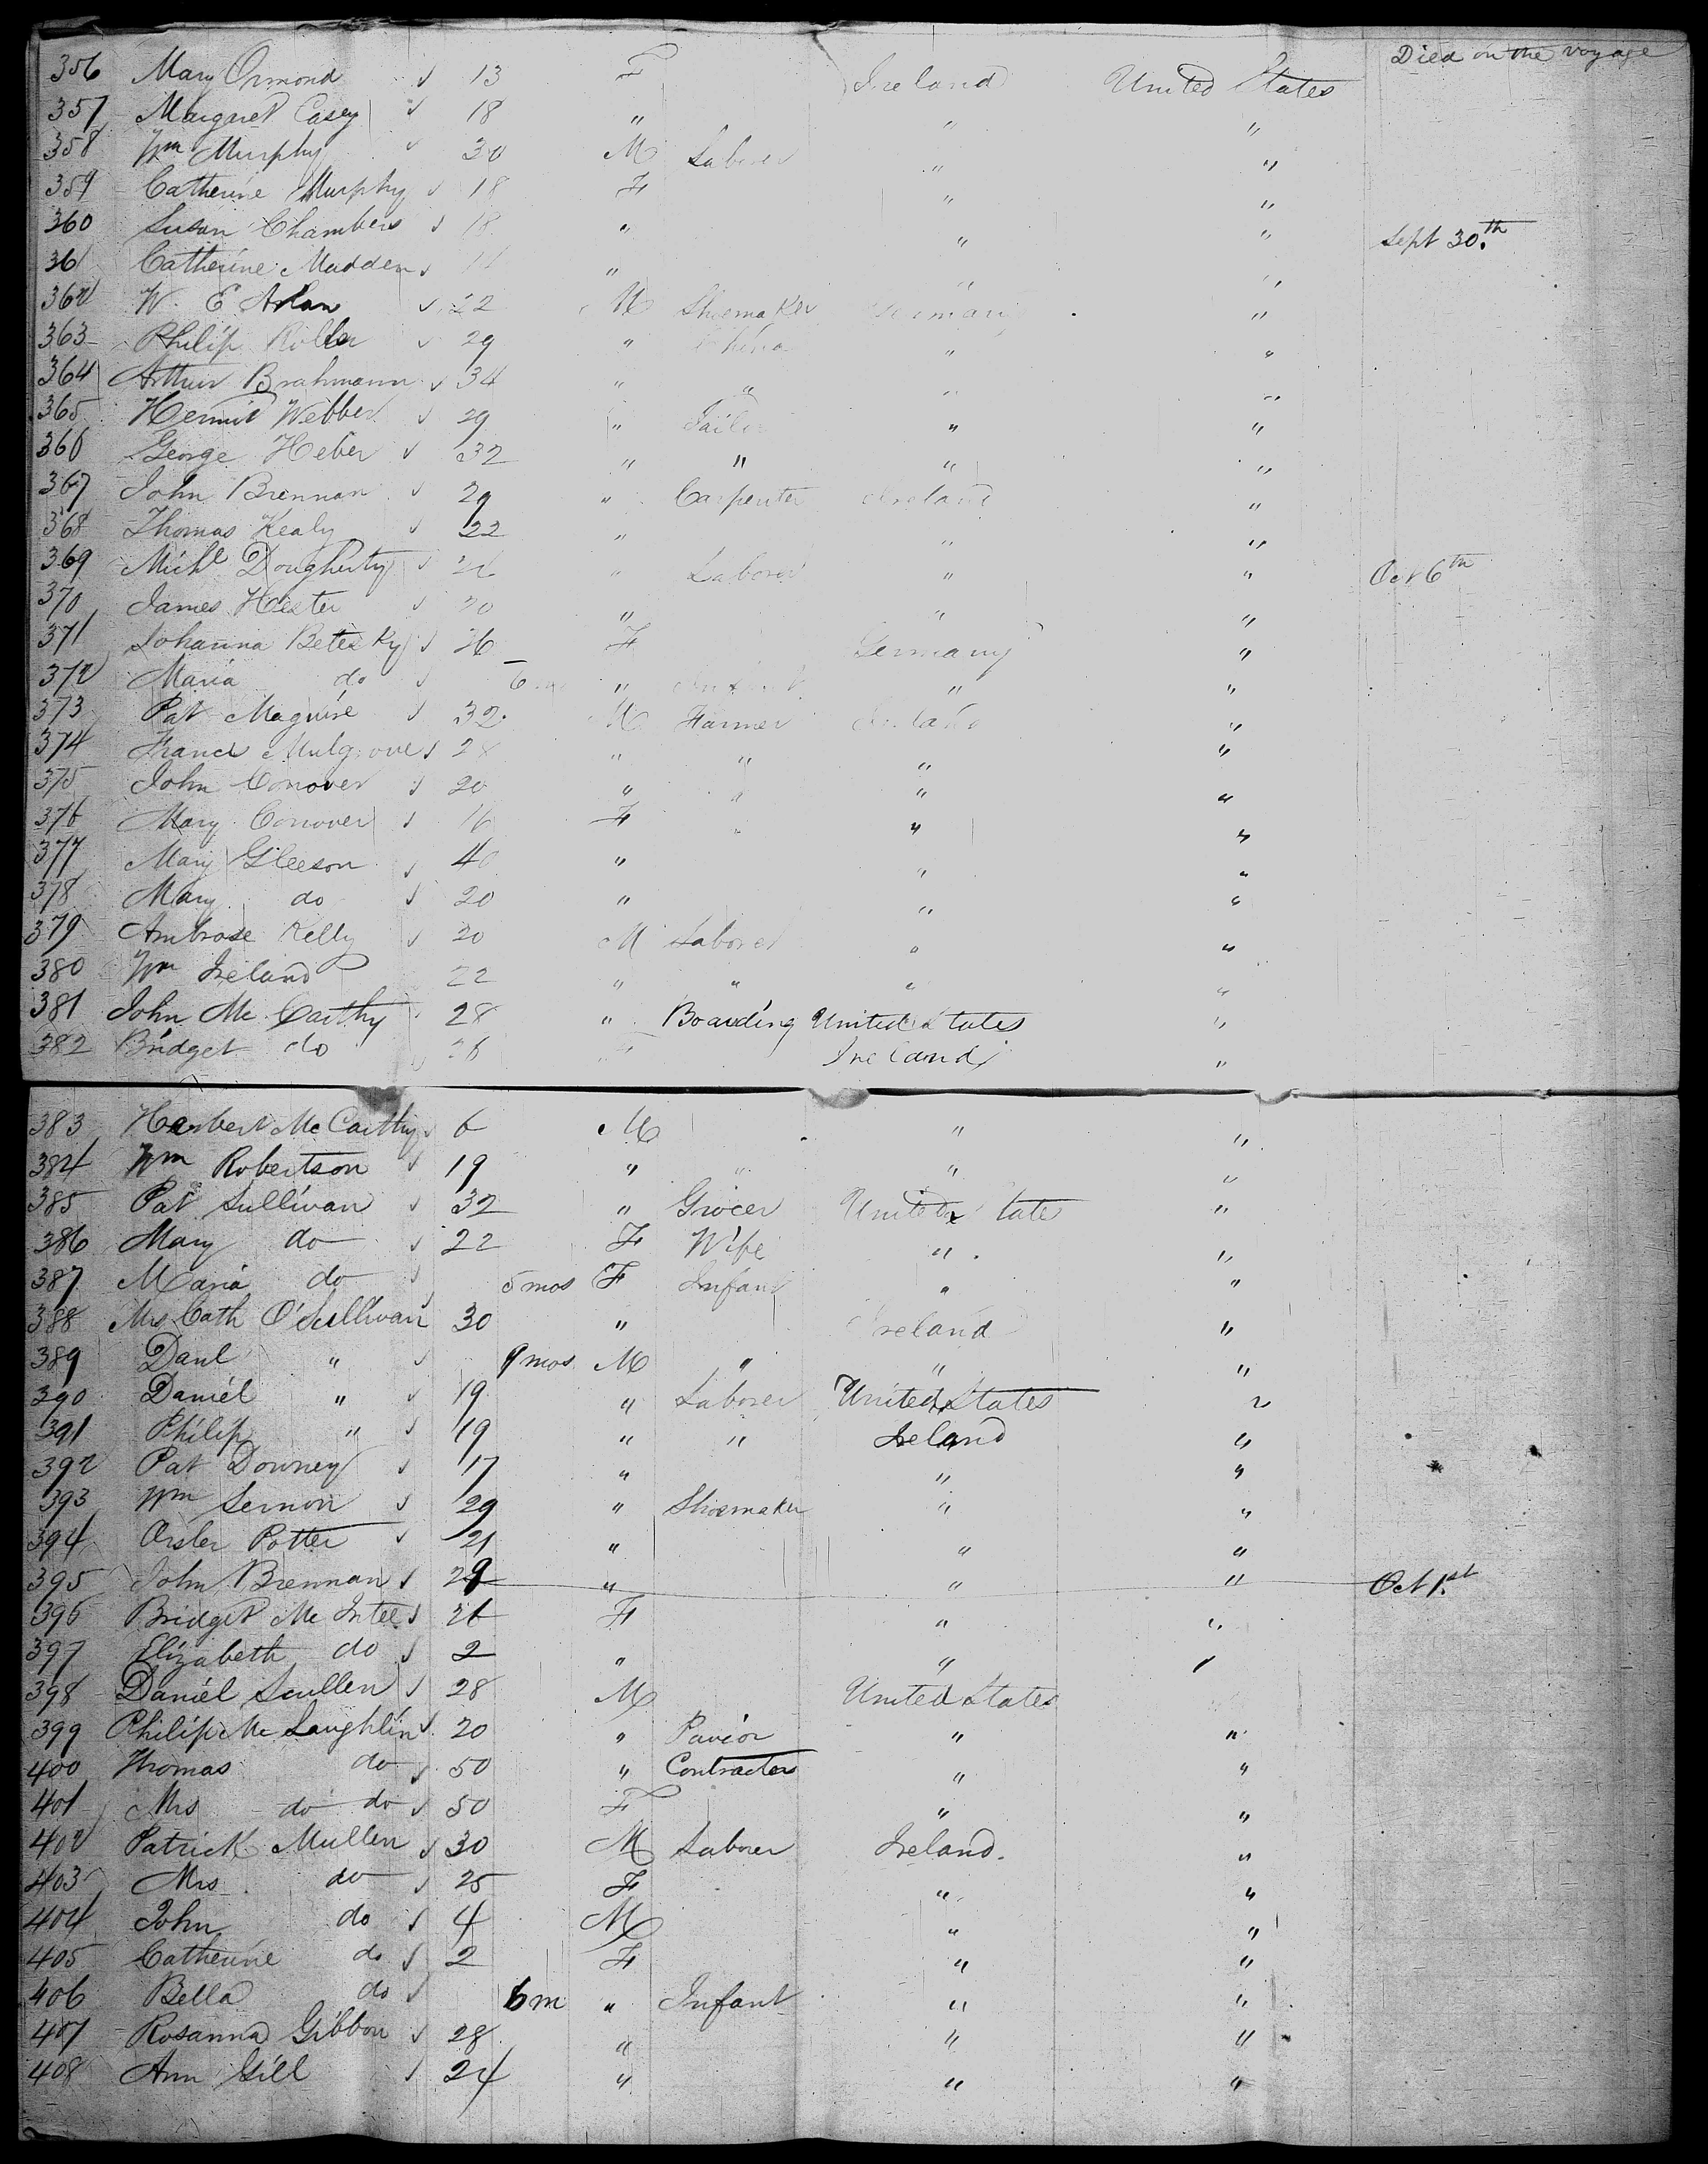 Died on the voyage
356 Mary Ormond 13 F Ireland United States
357 Margaret Casey 18 " " "
358 Wm Murphy 30 M Laborer " "
359 Catherine Murphy 18 F " "
360 Susan Chambers 18 " " " Sept 30.th
361 Catherine Madden " " "
362 W. E 22 M Shoemaker Germany "
363 Philip 29 " " "
364 Arthur Brahmann 34 " " " "
365 Webber 29 " Tailor " "
366 George Heber 32 " " " "
367 John Brennan 29 " Carpenter Ireland "
368 Thomas Kealy 22 " " "
369 Michl Dougherty " Laborer " " Oct 6th
370 James Hester 20 " " "
371 Johanna 26 F Germany "
372 Maria do 6 " Infant " "
373 Pat Maguire 32 M Farmer Ireland "
374 28 " " " "
375 John Conover 20 " " " "
376 Mary Conover 16 F " " "
377 Mary Gleeson 40 " " "
378 Mary do 20 " " "
379 Ambrose Kelly 20 M Laborer " "
380 Wm Ireland 22 " " " "
381 John Mc Carthy 28 " Boarding United States "
382 Bridget do 26 F Ireland "
383 Herbert Mc Carthy 6 M " "
384 Wm Robertson 19 " " " "
385 Pat Sullivan 32 " Grocer United States "
386 Mary do 22 F Wife " "
387 Maria do 5 mos F Infant " "
388 Mrs Cath O'Sullivan 30 " Ireland "
389 Danl " 9 mos M " " "
390 Daniel " 19 " Laborer United States "
391 Philip " 19 " " Ireland "
392 Pat Downey 17 " " "
393 Wm 29 " Shoemaker " "
394 Potter 21 " " "
395 John Brennan 29 " " " Oct 1.st
396 Bridget Mc Intee 26 F " "
397 Elizabeth do 2 " " "
398 Daniel Scullen 28 M United States
399 Philip Mc Laughlin 20 " Pavior " "
400 Thomas do 50 " Contractor " "
401 Mrs do do 50 F " "
402 Patrick Mullen 30 M Laborer Ireland. "
403 Mrs do 25 F " "
404 John do 4 M " "
405 Catherine do 2 F " "
406 Bella do 6 m " Infant " "
407 Rosanna Gibbon 28 " " "
408 Ann Gill 24 " " "